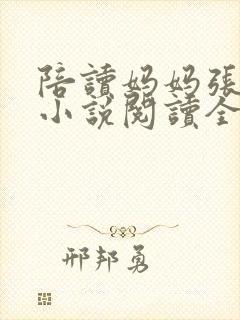 陪讀妈妈張
小說閱讀全
邢邦勇